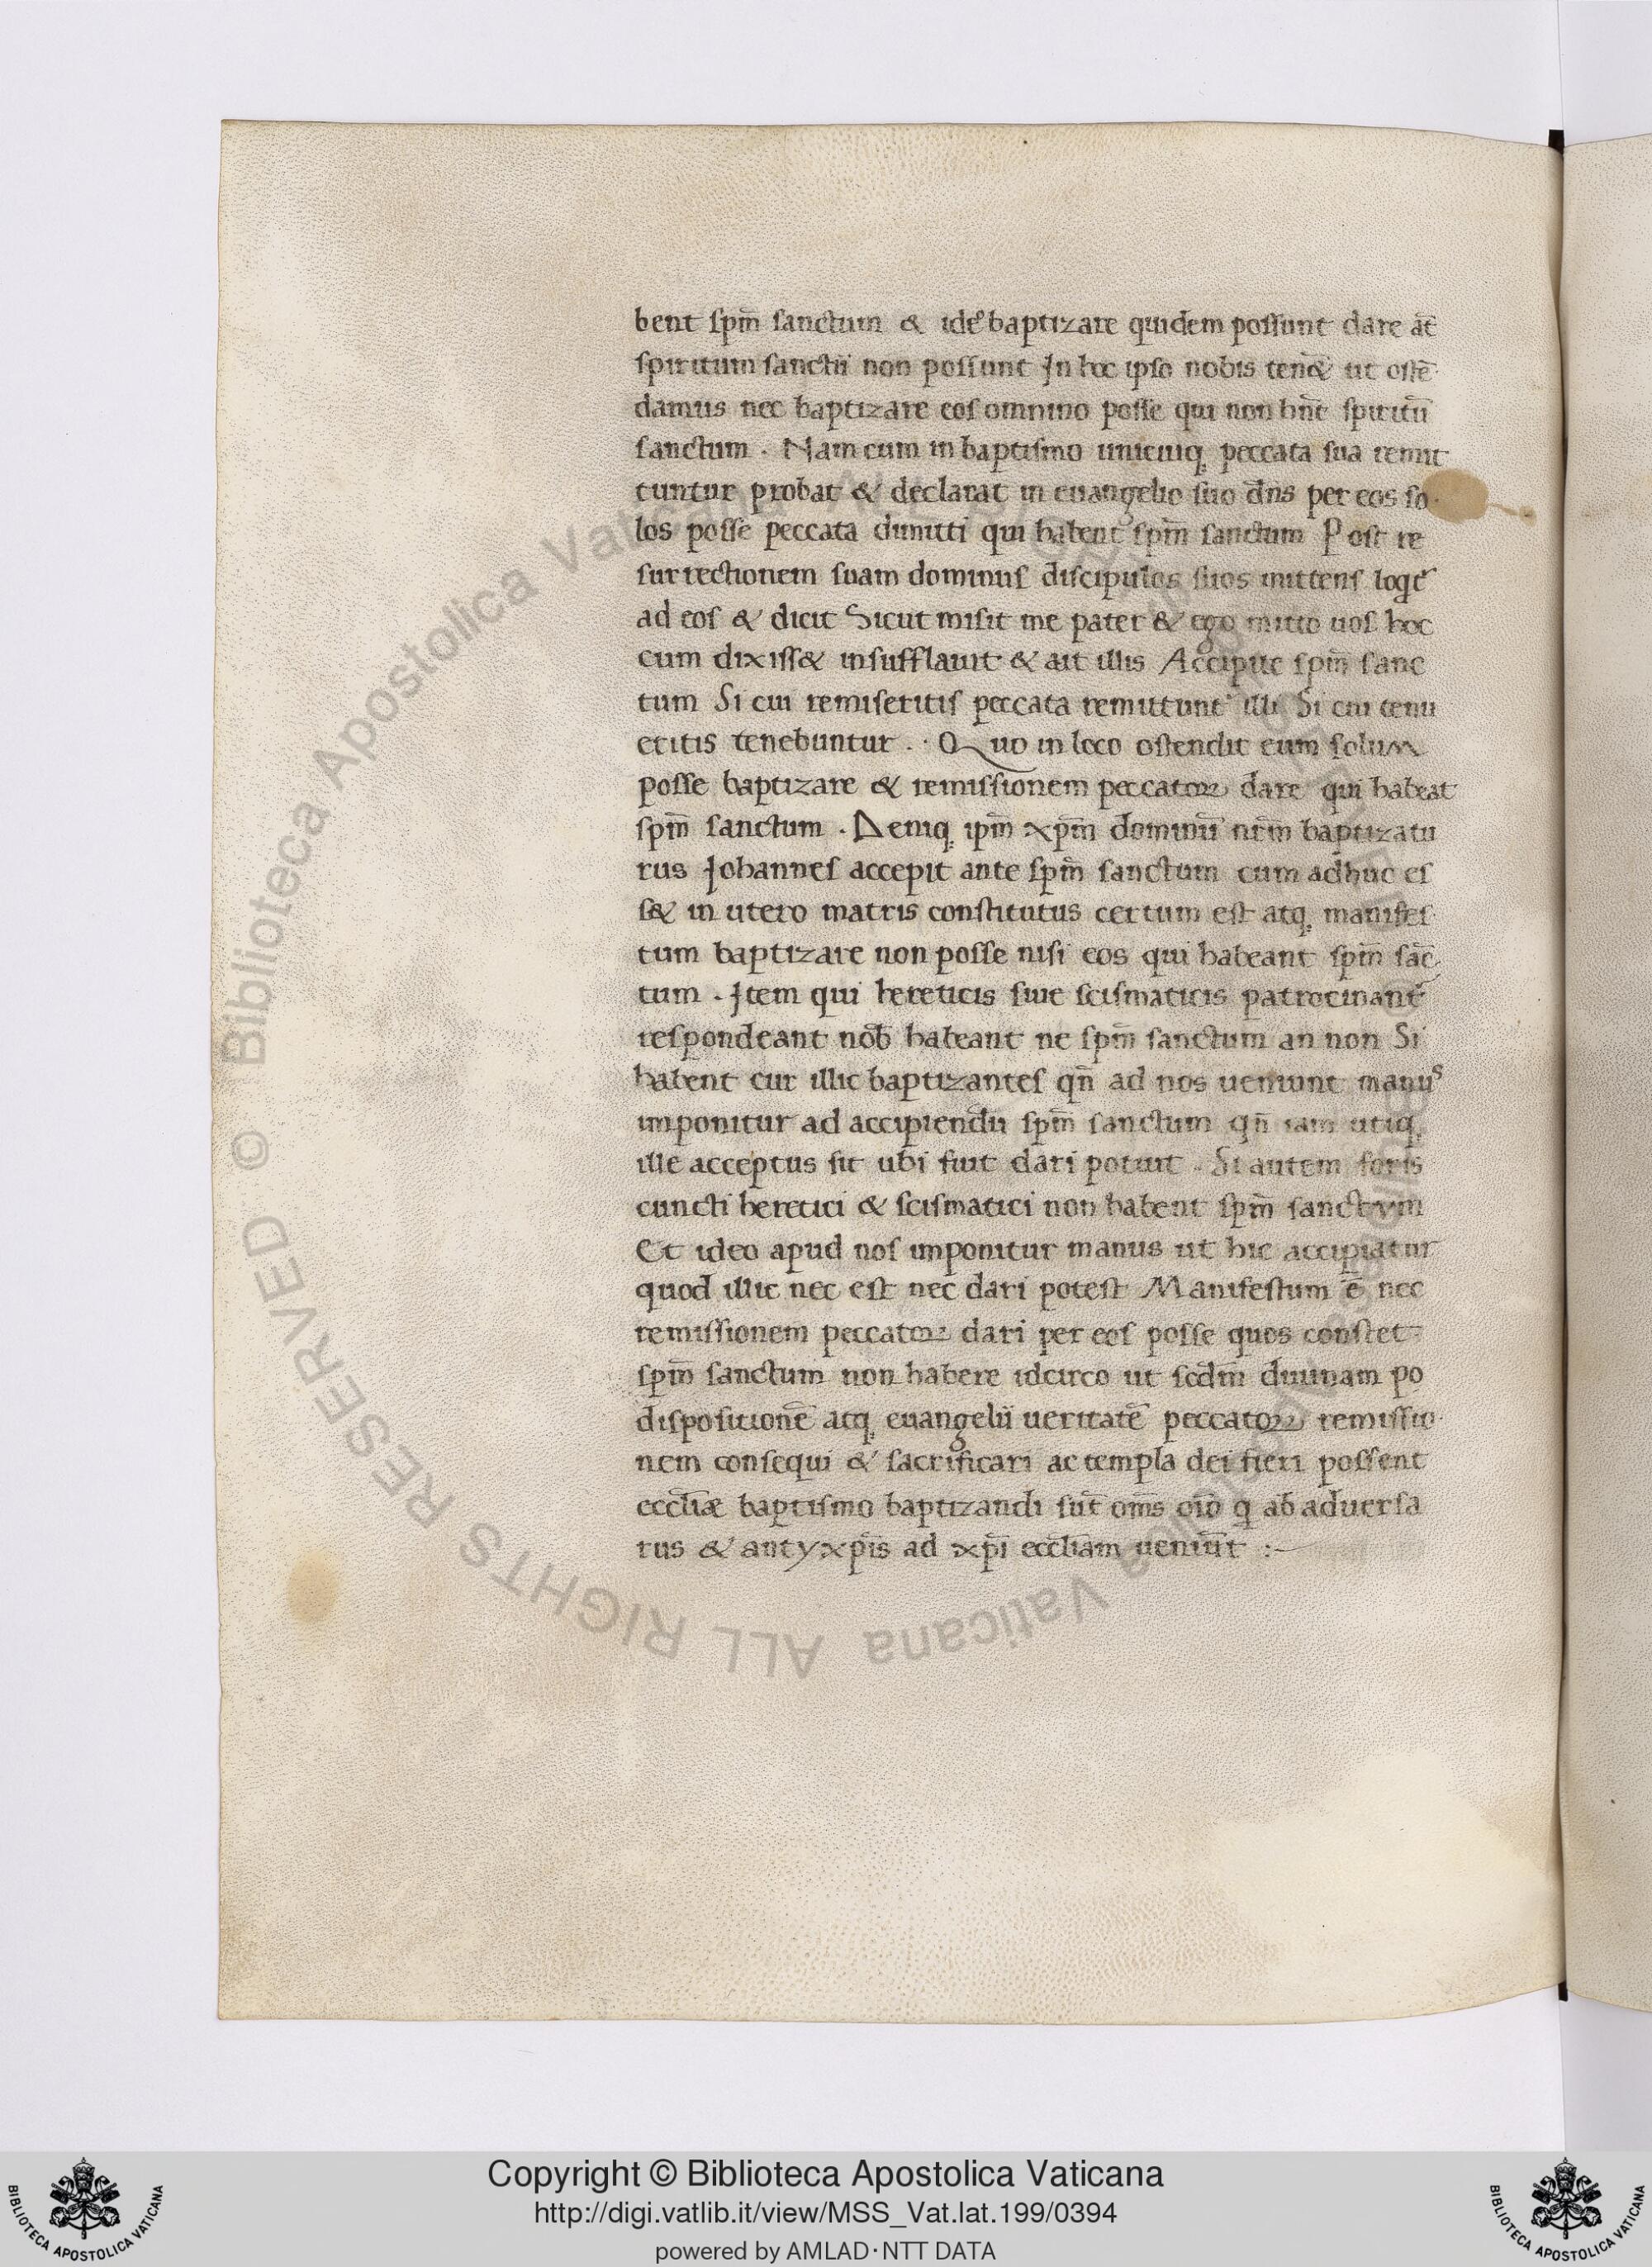 bent spm̄ sanctum & ideo baptizare quidem possunt dare at̄
spiritum sanctū non possunt In hoc ipso nobis ten& ut ostē
damus nec baptizare eos omnino posse qui non hn̄t spiritū
sanctum . Nam cum in baptismo unicuiq; peccata sua remit
tuntur probat & declarat in euangelio suo dn̄s per eos so
los posse peccata dimitti qui habent spm̄ sanctum Post re
surrectionem suam dominus discipulos suos mittens loqr̄
ad eos & dicit Sicut misit me pater & ego mitto uos hoc
cum dixiss& insufflauit & ait illis Accipite spm̄ sanc
tum Si cui remiseritis peccata remittunt᷑ illi Si cui tenu
eritis tenebuntur . . Quo in loco ostendit eum solum
posse baptizare & remissionem peccatoꝝ dare qui habeat
spm̄ sanctum . Deniq; ipm̄ xpm̄ dominū nr̄m baptizatu
rus Johannes accepit ante spm̄ sanctum cum adhuc es
s& in utero matris constitutus certum est atq; manifes
tum baptizare non posse nisi eos qui habeant spm̄ sāc
tum . Item qui hereticis siue scismaticis patrocinant᷑
respondeant nob̄ habeant ne spm̄ sanctum an non Si
habent cur illic baptizantes qn̄ ad nos ueniunt manus
imponitur ad accipiendū spm̄ sanctum qn̄ iam utiq;
ille acceptus sit ubi fuit dari potuit . Si autem foris
cuncti heretici & scismatici non habent spm̄ sanctum
Et ideo apud nos imponitur manus ut hic accipiatur
quod illic nec est nec dari potest Manifestum ē nec
remissionem peccatoꝝ dari per eos posse quos constet
spm̄ sanctum non habere idcirco ut scdm̄ diuinam po
dispositionē atq; euangelii ueritatē peccatoꝝ remissio
nem consequi & sacrificari ac templa dei fieri possent
eccl̄iæ baptismo baptizandi sūt om̄s oīo q ab aduersa
rus & antyxp̄is ad xp̄i eccl̄iam ueniūt :~
Copyright © Biblioteca Apostolica Vaticana
http://digi.vatlib.it/view/MSS_Vat.lat.199/0394
powered by AMLAD・NTT DATA
BIBLIOTECA APOSTOLICA VATICANA
BIBLIOTECA APOSTOLICA VATICANA
© Biblioteca Apostolica Vaticana ALL RIGHTS RESERVED